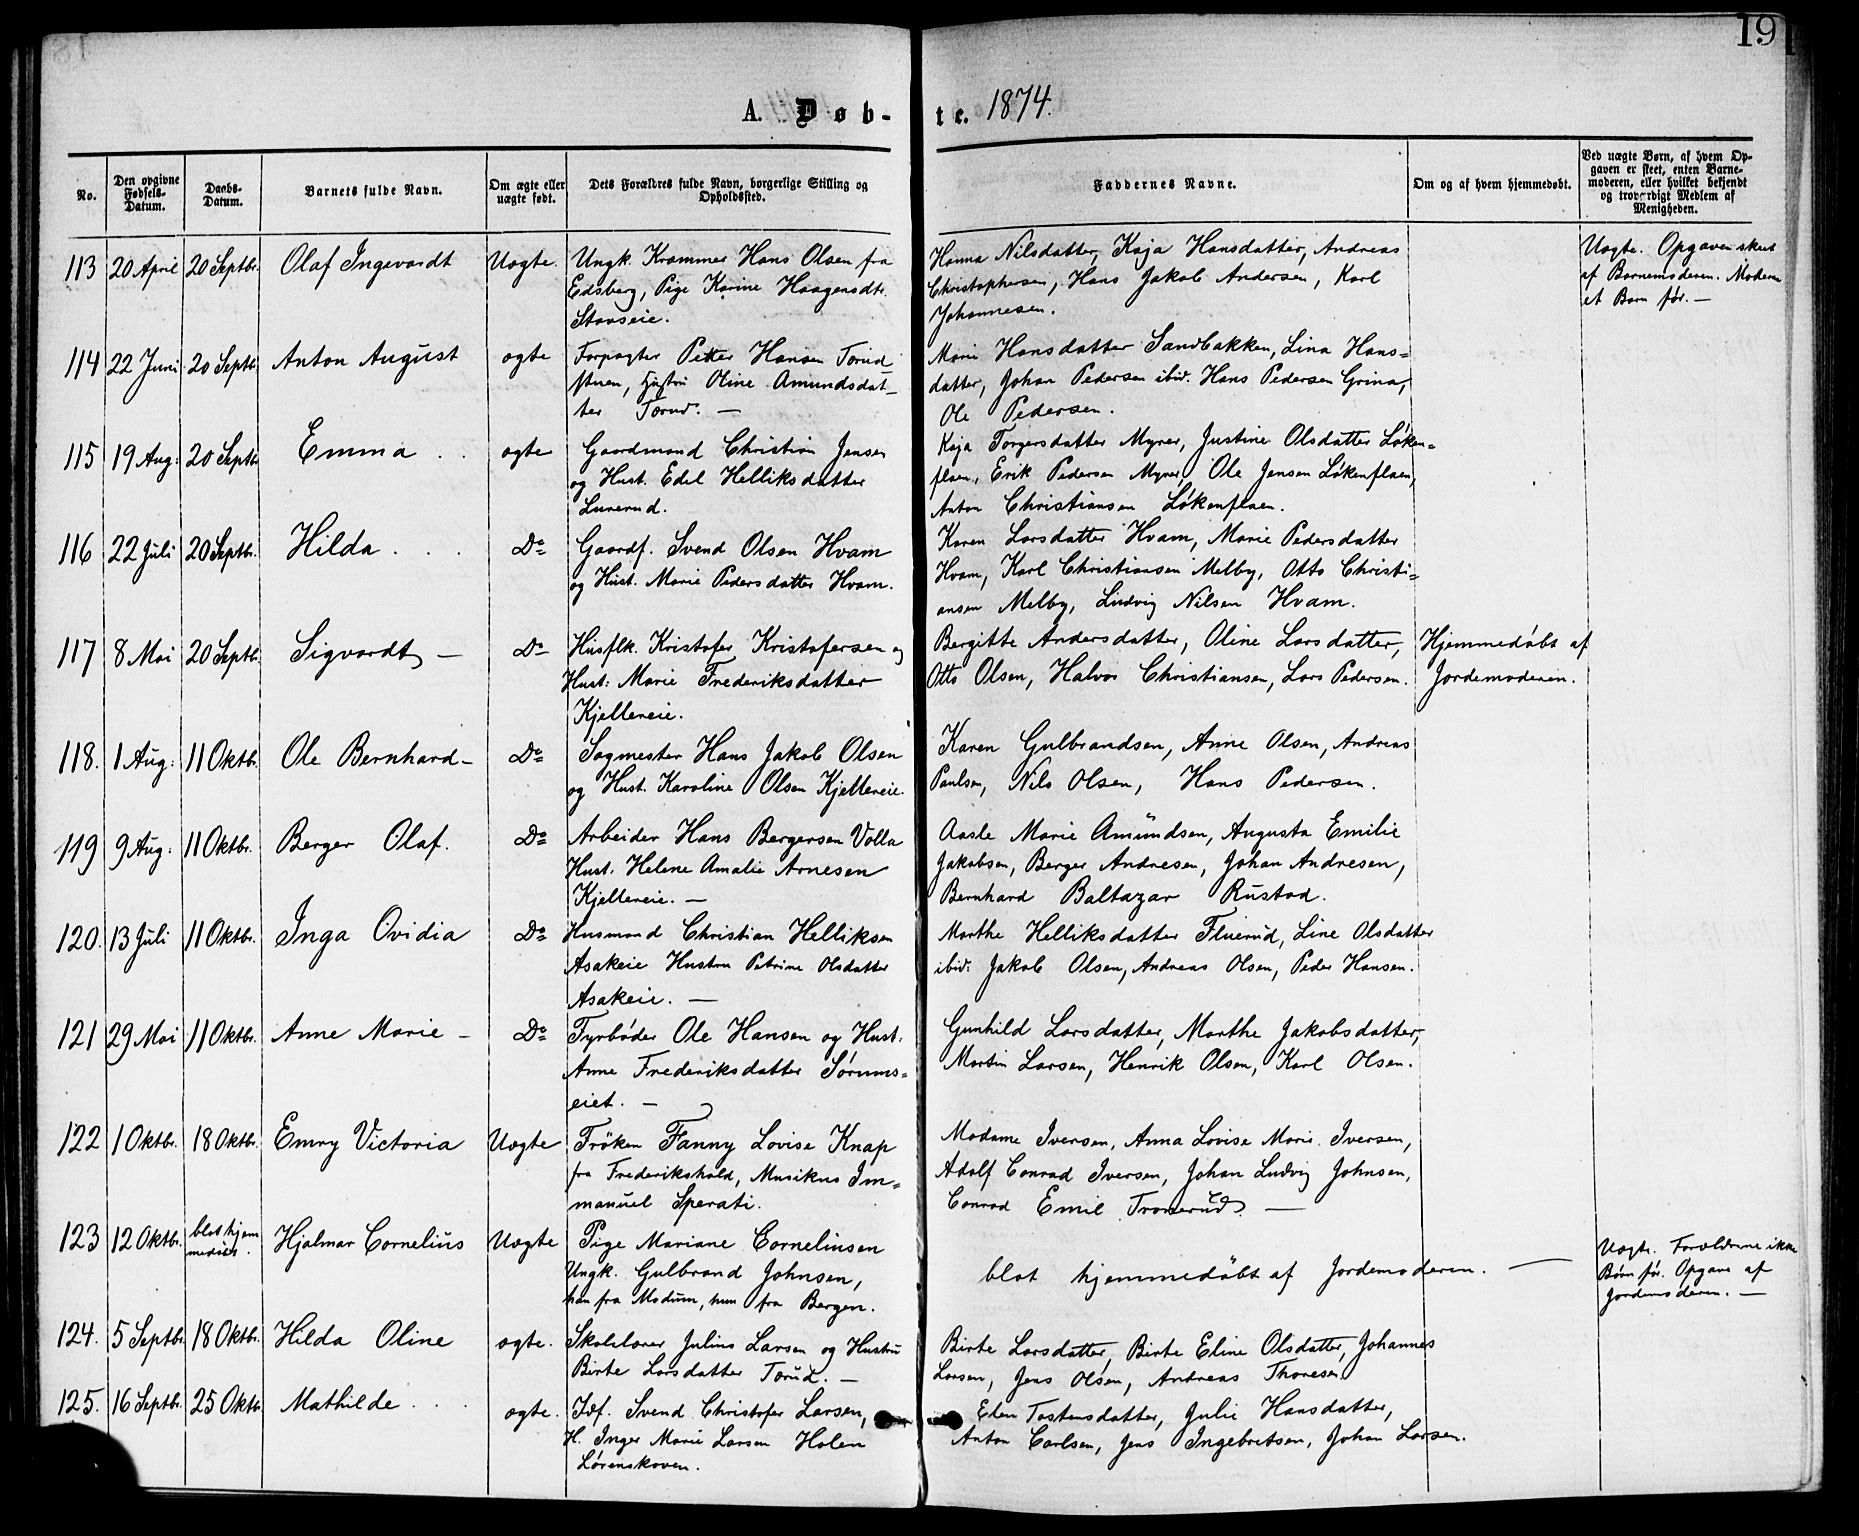 19
A. Døb-
te. 1874.
No.
Den opgivne Fødsels-Datum.
Daabs-Datum.
Barnets fulde Navn.
Om ægte eller uægte født.
Dets Forældres fulde Navn, borgerlige Stilling og Opholdssted.
Faddernes Navne.
Om og af hvem hjemmedøbt.
Ved uægte Børn, af hvem Opgaven er skeet, enten Barnemoderen, eller hvilket bekjendt og troværdigt Medlem af Menigheden.
113 20 April 20 Septbr. Olaf Ingevardt Uægte. Ungk. Krammer Hans Olsen fra
Edsberg, Pige Karine Haagensdtr.
Stavseie.
Hanna Nilsdatter, Kaja Hansdatter, Andreas
Christophersen, Hans Jakob Andersen, Karl
Johannesen.
Uægte. Opgaven skeet
af Barnemoderen. Moderen
et Barn før. —
114 22 Juni 20 Septb. Anton August ægte Forpagter Petter Hansen Torud
stuen, Hustru Oline Amundsdat-
ter Torud. —
Marie Hansdatter Sandbakken, Lina Hans=
datter, Johan Pedersen ibid. Hans Pedersen Grina,
Ole Pedersen.
115 19 Aug: 20 Septb. Emma . . ægte Gaardmand Christian Jensen
og Hust. Edel Helliksdatter
Lurerud.
Kaja Torgersdatter Myrer, Justine Olsdatter Løken=
flaen, Erik Pedersen Myrer, Ole Jensen Løkenflaen,
Anton Christiansen Løkenflaen.
116 22 Juli 20 Septbr. Hilda . . . Do Gaardf. Svend Olsen Hvam
og Hust. Marie Pedersdatter Hvam.
Karen Larsdatter Hvam, Marie Pedersdatter
Hvam, Karl Christiansen Melby, Otto Christi=
ansen Melby, Ludvig Nilsen Hvam.
117 8 Mai 20 Septb. Sigvardt — Do Husflk. Kristofer Kristofersen og
Hust: Marie Frederiksdatter
Kjellereie.
Bergitte Andersdatter, Oline Larsdatter,
Otto Olsen, Halvor Christiansen, Lars Pedersen.
Hjemmedøbt af
Jordemoderen.
118. 1 Aug: 11 Oktbr. Ole Bernhard — Do Sagmester Hans Jakob Olsen
og Hust. Karoline Olsen Kjellereie.
Karen Gulbrandsen, Anne Olsen, Andreas
Paulsen, Nils Olsen, Hans Pedersen.
119 9 Aug: 11 Oktbr. Berger Olaf. Do Arbeider Hans Bergersen Volla
Hust. Helene Amalie Arnesen
Kjellereie. —
Aasle Marie Amundsen, Augusta Emilie
Jakobsen, Berger Andresen, Johan Andresen,
Bernhard Baltazar Rustad.
120. 13 Juli 11 Oktbr. Inga Ovidia Do Husmand Christian Helliksen
Asakeie Hustru Petrine Olsdatter
Asakeie. —
Marthe Helliksdatter Fluerud, Line Olsdatter
ibid: Jakob Olsen, Andreas Olsen, Peder Hansen.
121 29 Mai 11 Oktbr. Anne Marie — Do Fyrbøder Ole Hansen og Hust.
Anne Frederiksdatter Sørums=
eiet. —
Gunhild Larsdatter, Marthe Jakobsdatter,
Martin Larsen, Henrik Olsen, Karl Olsen.
122 1 Oktbr. 18 Oktbr. Emry Victoria Uægte Frøken Fanny Lovise Knap
fra Frederikshald, Musikus Im=
manuel Sperati.
Madame Iversen, Anna Lovise Marie Iversen,
Adolf Conrad Iversen, Johan Ludvig Johnsen,
Conrad Emil Tronerud. —
123 12 Oktbr. blot hjem
medøbt. Hjalmar Cornelius Uægte Pige Mariane Cornelinsen
Ungk. Gulbrand Johnsen,
han fra Modum, hun fra Bergen.
blot hjemmedøbt af Jordemoderen. —
Uægte. Forældrene ikke
Børn før. Opgave af
Jordemoderen. —
124. 5 Septbr. 18 Oktbr. Hilda Oline ægte. Skolelærer Julius Larsen og Hustru
Birte Larsdatter Torud. —
Birte Larsdatter, Birte Eline Olsdatter, Johannes
Larsen, Jens Olsen, Andreas Thoresen
125. 16 Septbr. 25 Oktbr. Mathilde . . . ægte. Idf. Svend Christofer Larsen,
H. Inger Marie Larsen Holen
Lørenskoven.
Elen Tostensdatter, Julie Hansdatter,
Anton Carlsen, Jens Ingebretsen, Johan Larsen.